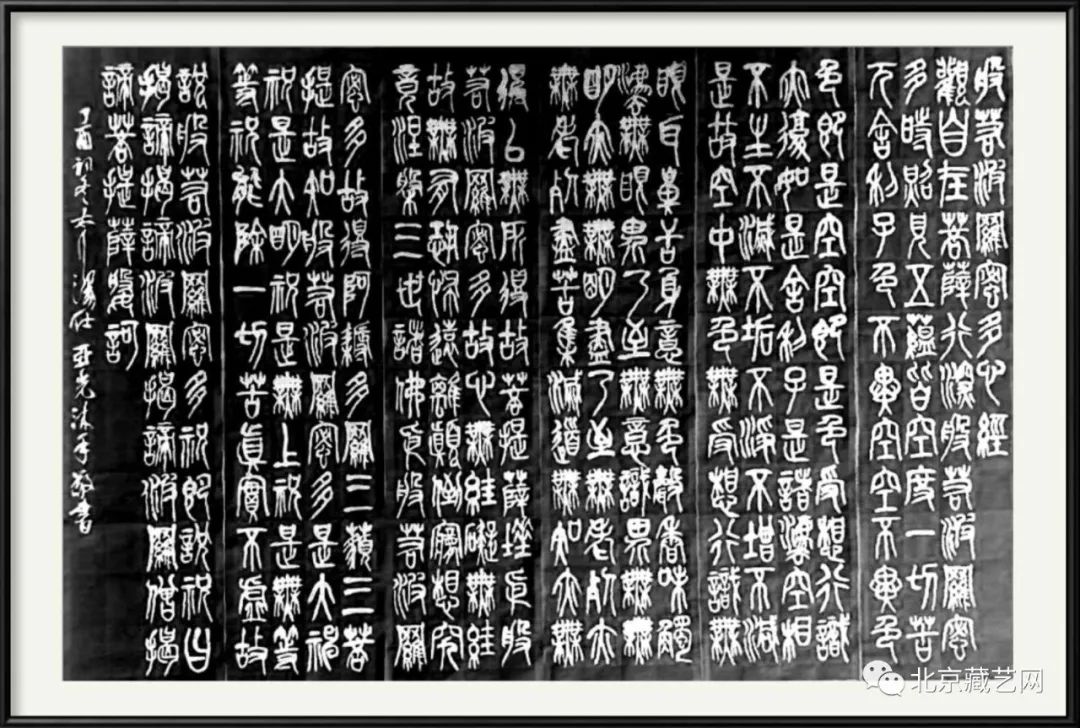 般若波羅蜜多心經
觀自在菩薩行深般若波羅蜜
多時照見五蘊皆空度一切苦
厄舍利子色不異空空不異色
色即是空空即是色受想行識
亦復如是舍利子是諸法空相
不生不滅不垢不淨不增不減
是故空中無色無受想行識無
眼耳鼻舌身意無色聲香味觸
法無眼界乃至無意識界無無
明亦無無明盡乃至無老死亦
無老死盡苦集滅道無知亦無
得以無所得故菩提薩埵依般
若波羅蜜多故心無罣礙無罣
故無有恐怖遠離顛倒夢想究
竟涅槃三世諸佛依般若波羅
蜜多故得阿耨多羅三藐三菩
提故知般若波羅蜜多是大神
祝是大明祝是無上祝是無等
等祝能除一切苦真實不虛故
說般若波羅蜜多祝即說祝曰
揭諦揭諦波羅揭諦波羅僧揭
諦菩提薩婆訶
丁酉初冬 亞光沐手敬書
北京藏艺网